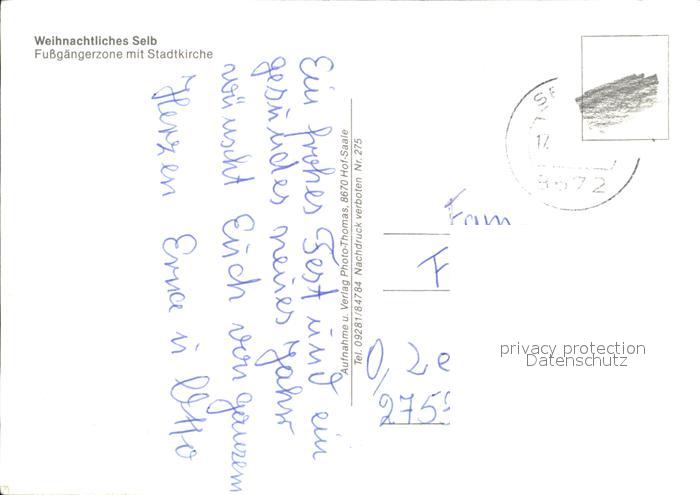 Weihnachtliches Selb
Fußgängerzone mit Stadtkirche
Ein frohes Fest und ein
gesundes neues Jahr
wünscht Euch von ganzem
Herzen Erna u Otto
Aufnahme u. Verlag Photo-Thomas, 8670 Hof-Saale
Tel. 09281/84784 Nachdruck verboten Nr. 275
SE
17.
8672
Fam
F
275
privacy protection
Datenschutz